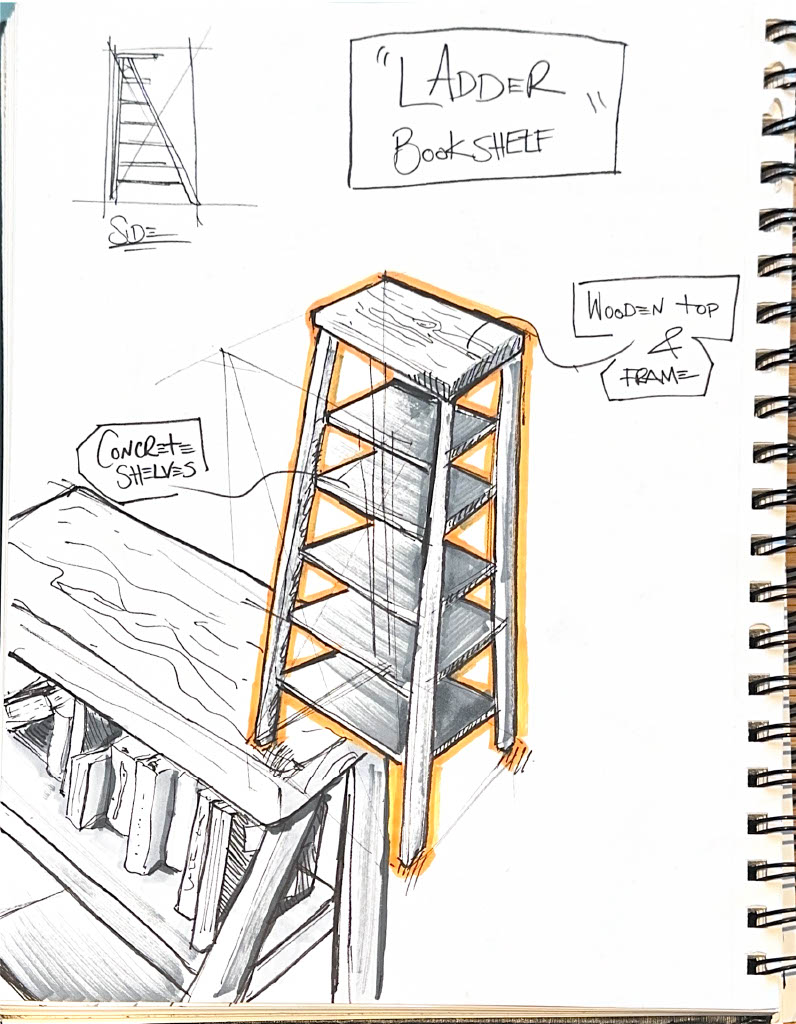 "LADDER"
BOOKSHELF
SIDE
WOODEN TOP
&
FRAME
CONCRETE
SHELVES